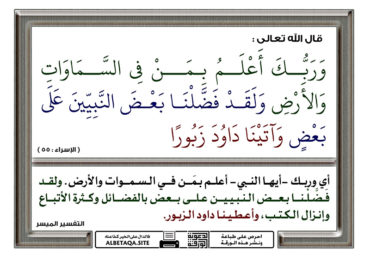 قال الله تعالى :
وَرَبُّكَ أَعْلَمُ بِمَنْ فِى السَّمَاوَاتِ
وَالْأَرْضِ وَلَقَدْ فَضَّلْنَا بَعْضَ النَّبِيِّينَ عَلَى
بَعْضٍ وَآتَيْنَا دَاوُدَ زَبُورًا
( الإسراء : ٥٥ )
أي وربك -أيها النبي- أعلم بمَن في السموات والأرض. ولقد
فضَّلنا بعض النبيين على بعض بالفضائل وكثرة الأتباع
وإنزال الكتب، وأعطينا داود الزبور.
التفسير الميسر
احرص على طباعة
ونشر هذه الورقة
فالدال على الخير كفاعله
ALBETAQA.SITE